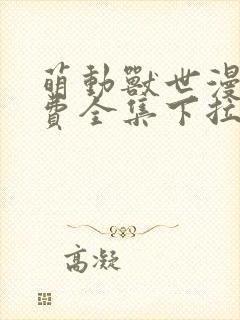 萌動獸世漫
費全集下拉
高凝